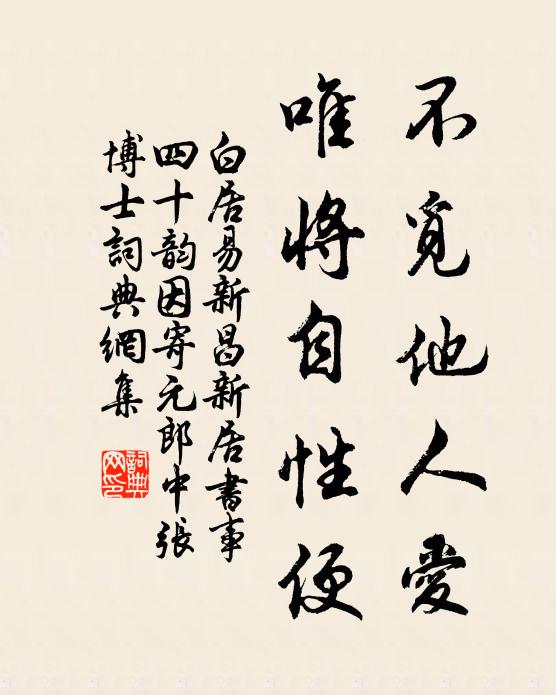 不覓他人愛
唯將自性便
白居易新昌新居書事
四十韵因寄元郎中張
博士詞典網集
詞典
网印